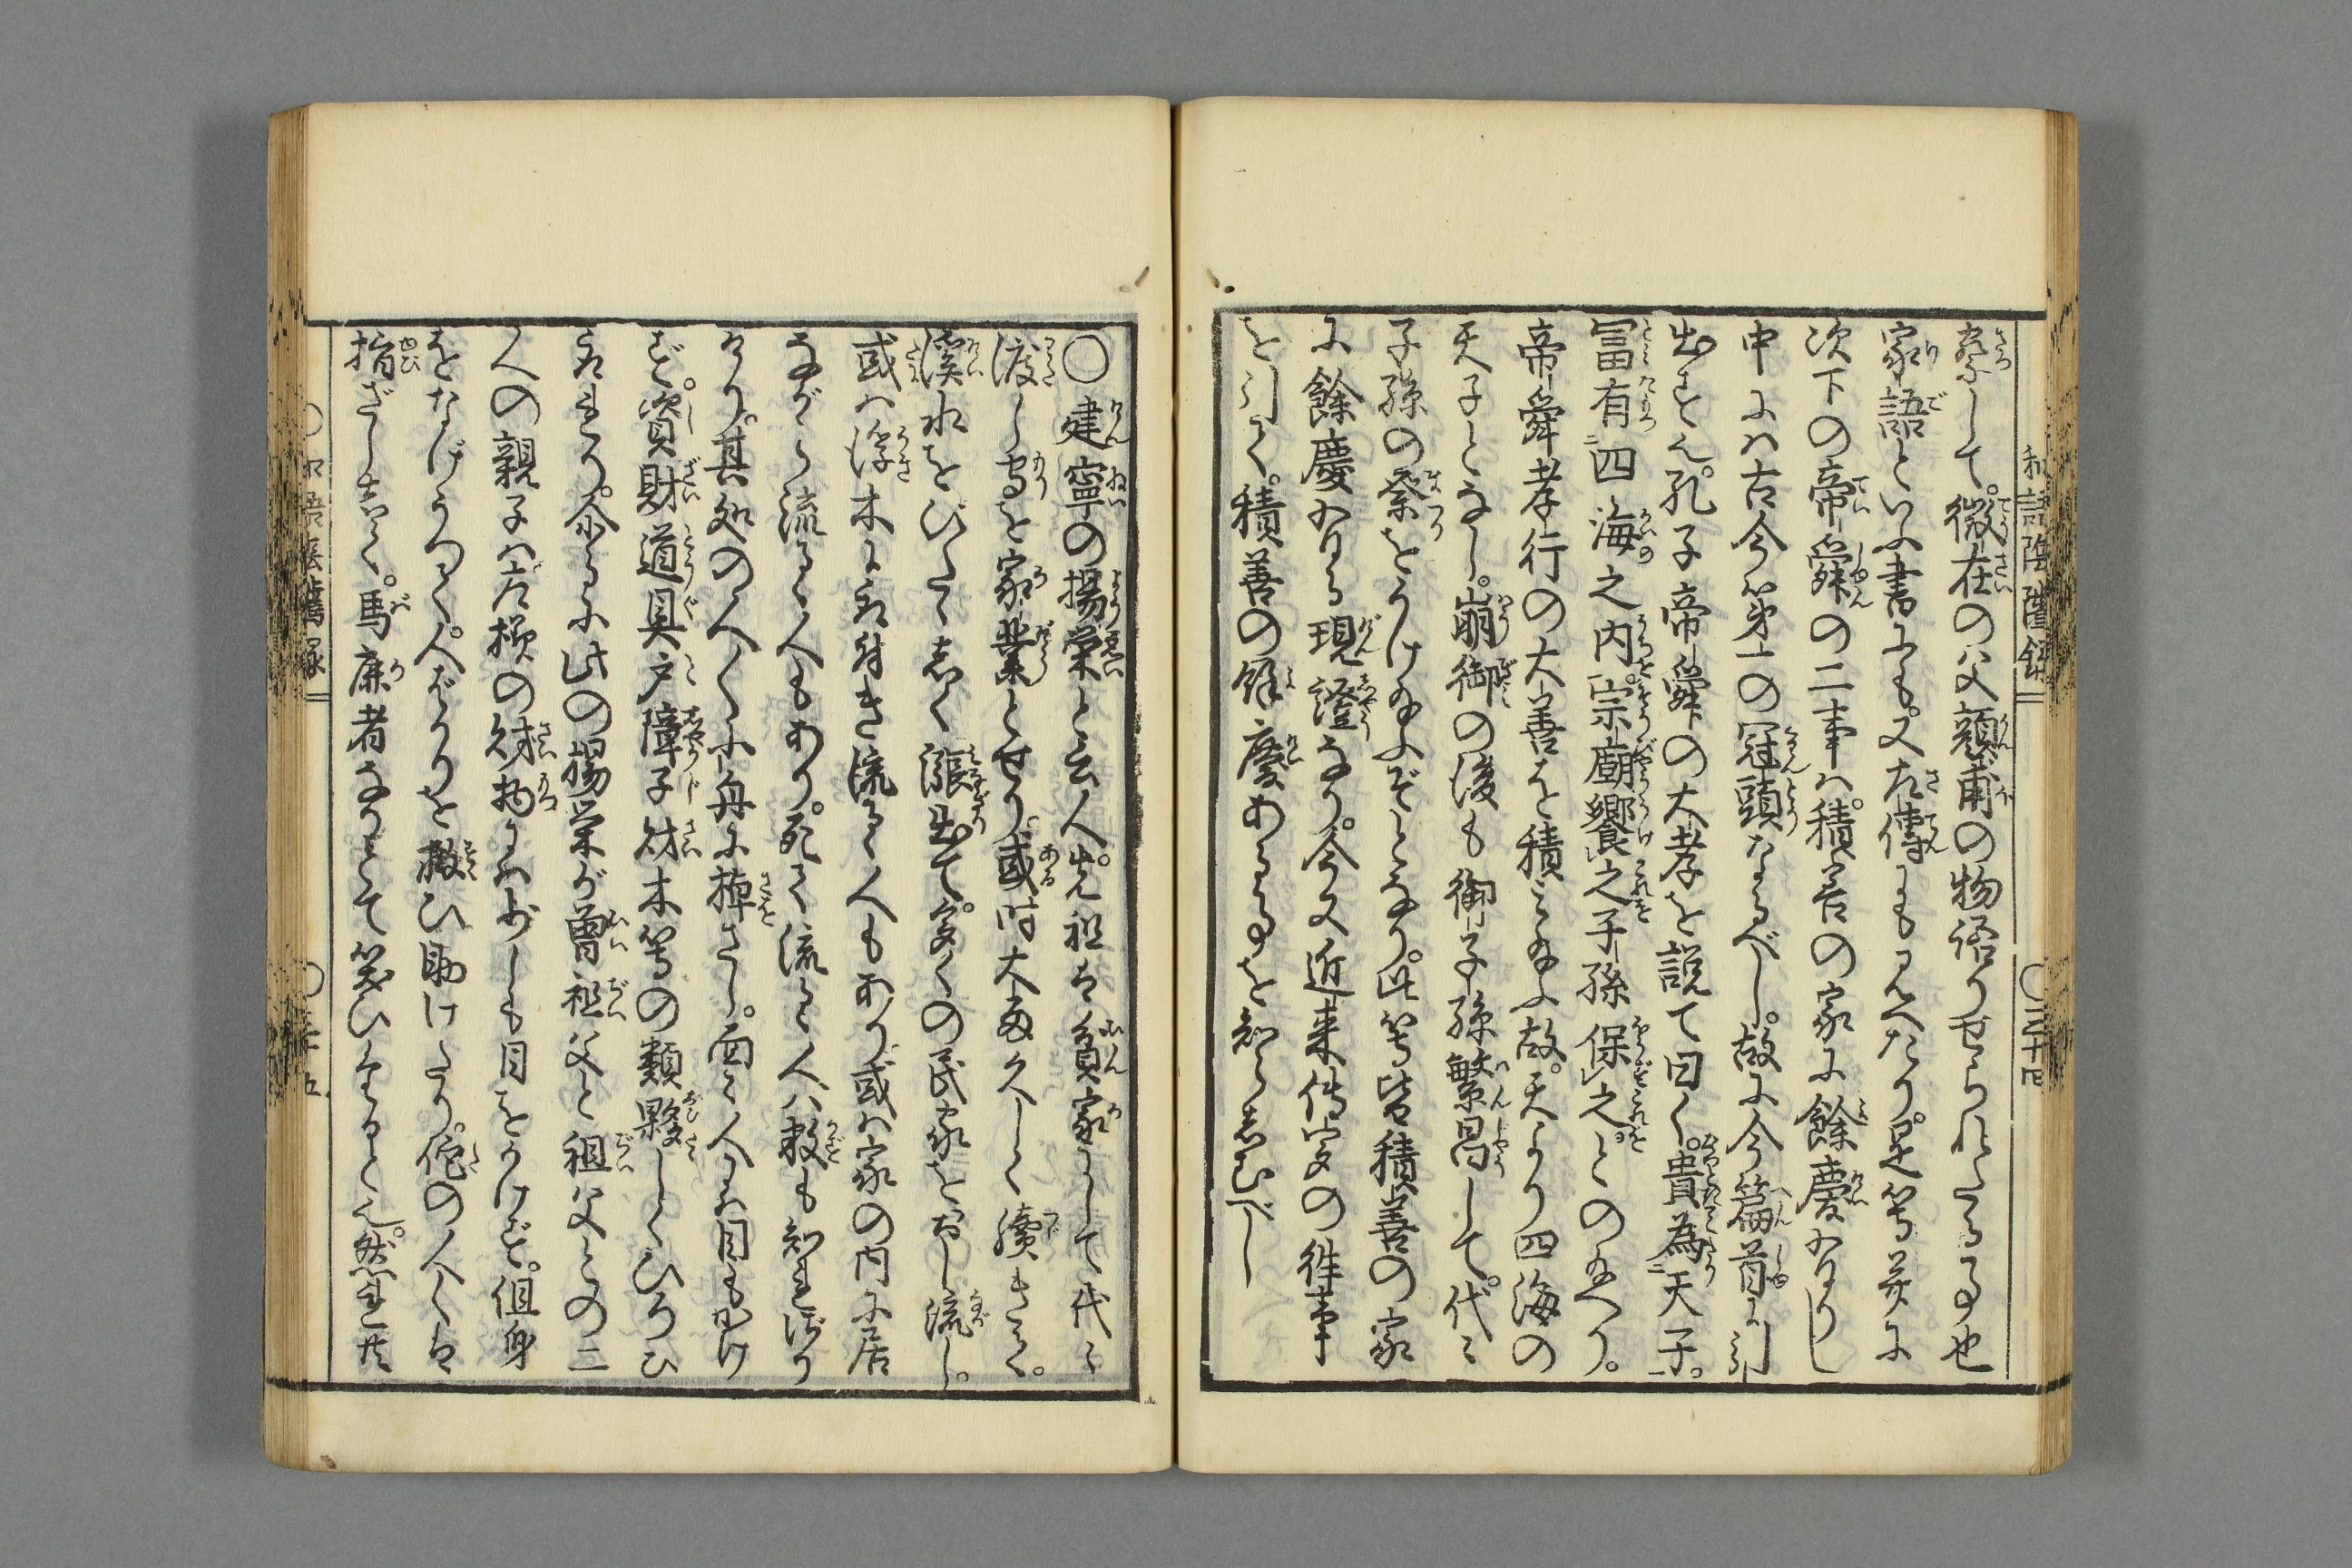 和語陰隲録 ○三十四
察して。徴在の父顔甫の物語りせられたる事也
家語といふ書にも。又左傳にも見へたり。是等并に
次下の帝舜の二事ハ。積善の家に餘慶ありし
中にハ古今第一の冠頭なるべし。故に今篇首に引
出せり。孔子帝舜の大孝を説て曰く。貴為天子。
冨有四海之内。宗廟饗之子孫保之。との玉へり。
帝舜孝行の大善を積ミ玉ふ故。天より四海の
天子となし。崩御の後も御子孫繁昌して。代々
子孫の祭をうけ玉ふぞとなり。此等皆積善の家
に餘慶ある現證なり。今又近来傳家の徃事
を引て。積善の餘慶ある事を知らしむべし
○建寧の揚榮と云人。先祖は貧家にして代々
渡し守を家業とせり。或時大雨久しく續きて。
溪水をびたゝしく漲出て。多くの民家をおし流し。
或ハ浮木に取付き流るゝ人もあり。或ハ家の内に居
ながら流るゝ人もあり。死て流るゝ人ハ数も知れざり
けり。其処の人〳〵小舟に棹さし。面々人には目もかけ
ず。資財道具戸障子材木等の類夥しくひろひ
取れり。余るに此の揚栄が曽祖父と祖父との二
人の親子ハ左様の財物には少しも目をかけず。但身
をなげうつて。人ばかりを救ひ助けたり。佗の人〳〵は
指ざしして。馬廉者なりとて笑ひあへるとぞ。然れ共
○和語陰隲録 ○三十五